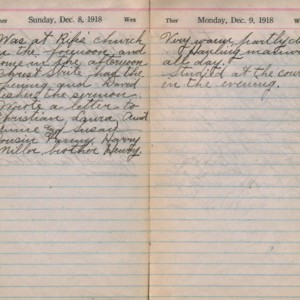 Ther
Sunday, Dec. 8, 1918
Wea
Was at Rife's church
in the forenoon and
home in the afternoon
Christ Strite had the
opening and David
Lesher the sermon.
Wrote a letter to
Christian, Laura, Aunt
Annie and Susan
Cousin Fanny, Harry
Miller, brother Henry.
Ther
Monday, Dec. 9, 1918
Wea
Very warm partly
Hauling manure
all day.
Studied at the
in the evening.